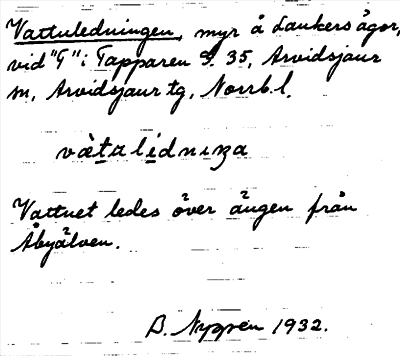 Vattuledningen, myr å Lankersågor,
vid "G" i Tapparen S. 35, Arvidsjaur
sn, Arvidsjaur tg, Norrb. l.
vàtalidnıŋa
Vattnet ledes över ängen från
Åbyälven.
B. Nygren 1932.